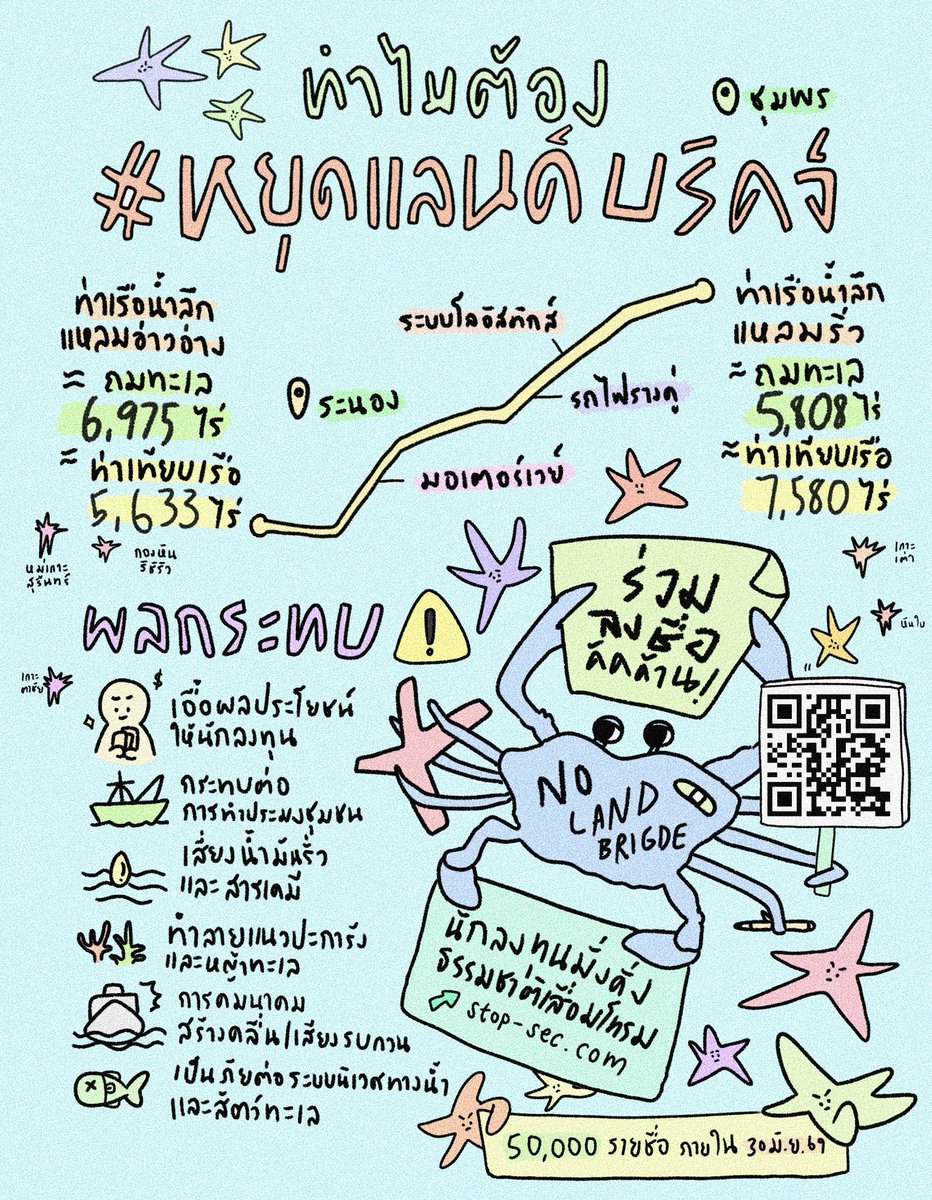 ทำไมต้อง
ชุมพร
#หยุดแลนด์บริดจ์
ท่าเรือน้ำลึก
แหลมอ่าวอ่าง
≈ ถมทะเล
6,975 ไร่
≈ ท่าเทียบเรือ
5,633 ไร่
ระนอง
ระบบโลจิสติกส์
รถไฟรางคู่
มอเตอร์เวย์
ท่าเรือน้ำลึก
แหลมริ่ว
≈ ถมทะเล
5,808 ไร่
≈ ท่าเทียบเรือ
7,580 ไร่
หมู่เกาะ
สุรินทร์
กองหิน
ริชิริว
เกาะ
เต่า
หินใบ
เกาะ
ตาชัย
ผลกระทบ
!
$
เอื้อผลประโยชน์
ให้นักลงทุน
กระทบต่อ
การทำประมงชุมชน
เสี่ยงน้ำมันรั่ว
และสารเคมี
ทำลายแนวปะการัง
และหญ้าทะเล
การคมนาคม
สร้างคลื่น/เสียงรบกวน
เป็นภัยต่อระบบนิเวศทางน้ำ
และสัตว์ทะเล
ร่วม
ลงชื่อ
คัดค้าน!
NO
LAND
BRIGDE
นักลงทุนมั่งคั่ง
ธรรมชาติเสื่อมโทรม
stop-sec.com
50,000 รายชื่อ ภายใน 30 มิ.ย. 69